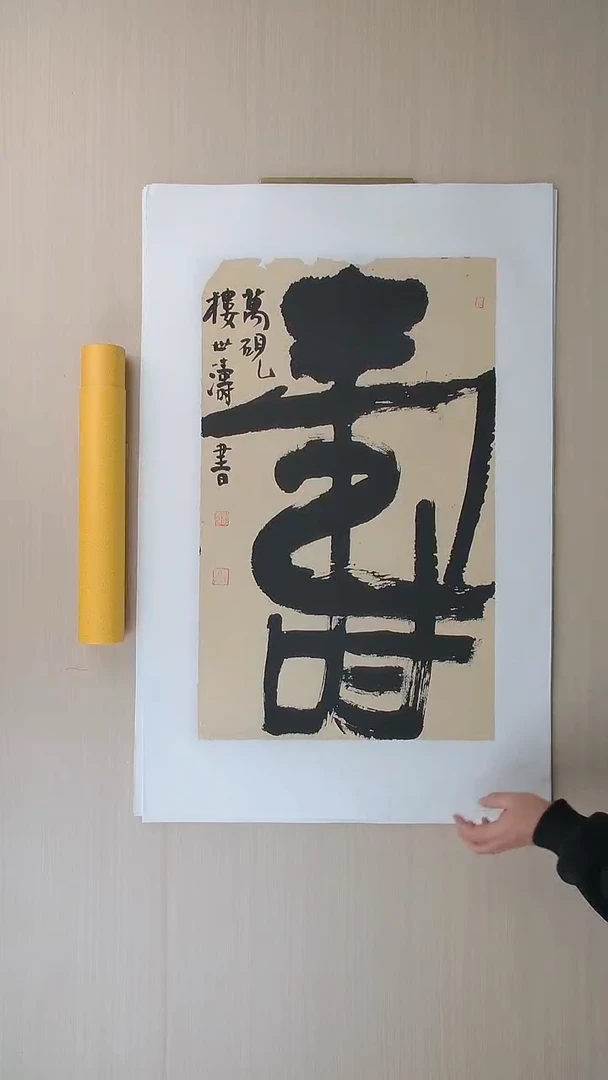 壽
萬硯
樓世濤書